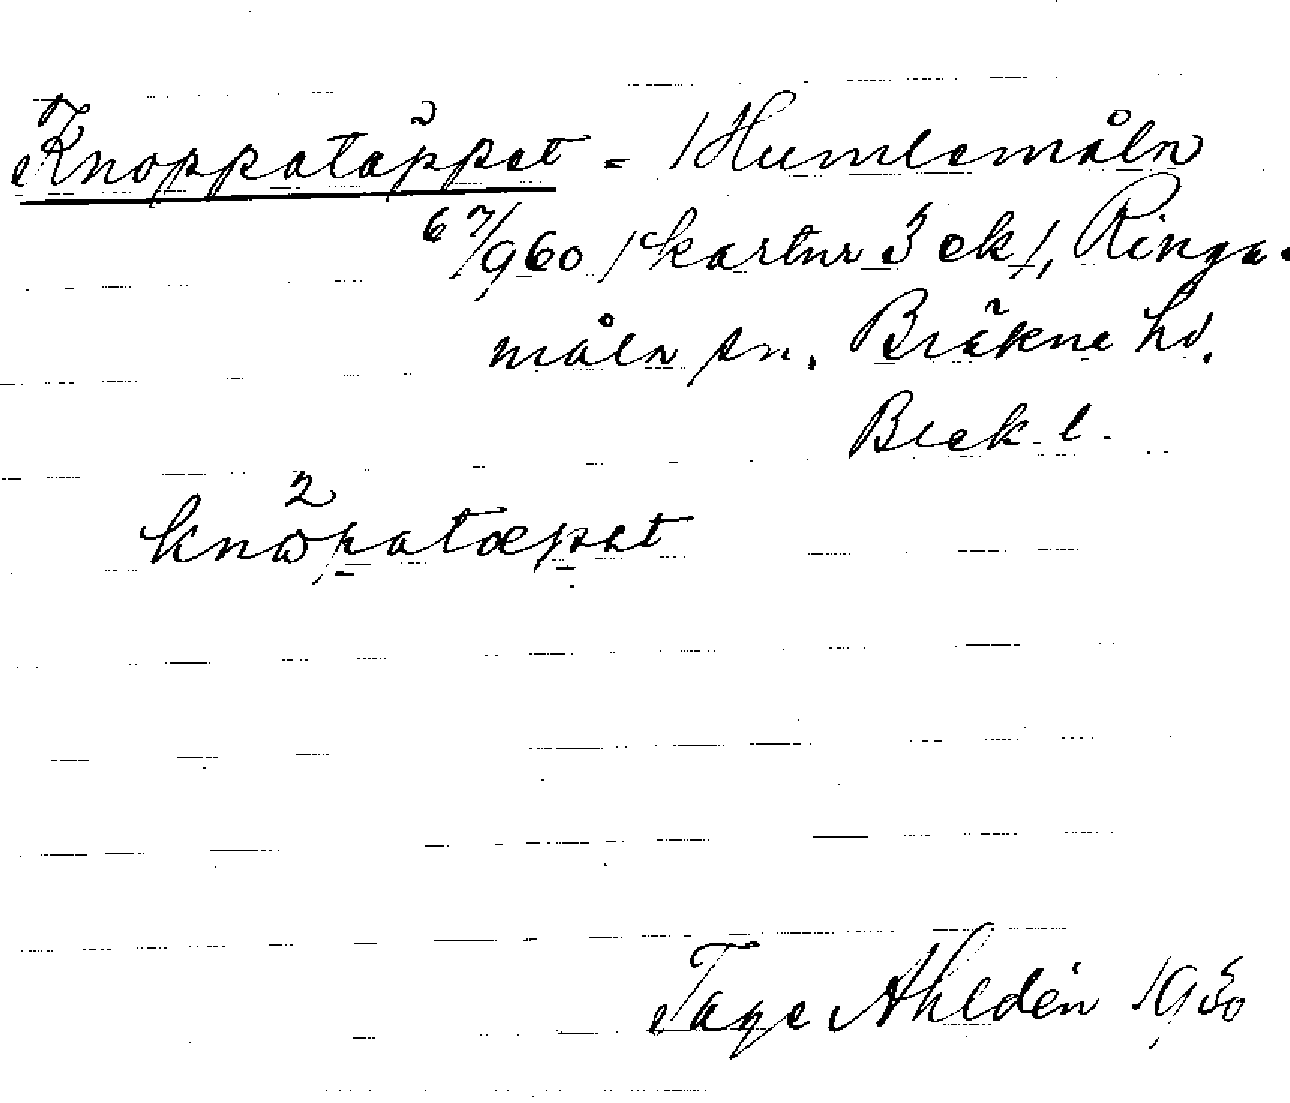 Knoppatäppet - /Humlemåla
67/960 /kartnr 3 ek/, Ringa-
måla sn. Bräkne hd.
Blek. l.
2
knɷpatæpet
Tage Ahldén 1950